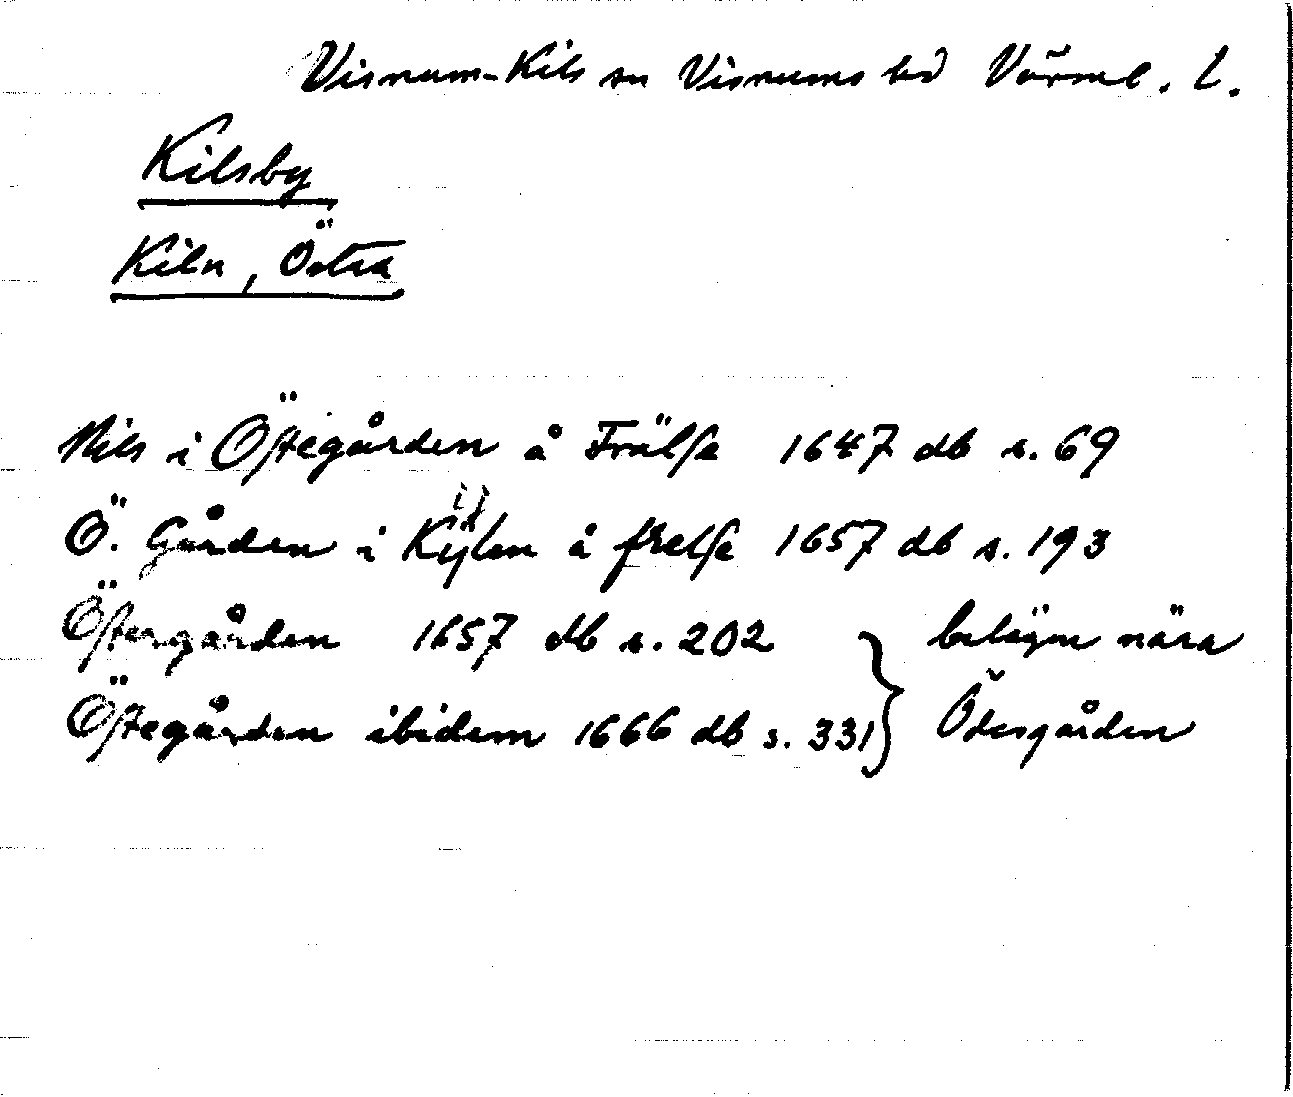 Visnum-Kils sn Visnums hd Värml. l.
Kilsby
Kiln, Östra
Nils i Östegården å Frälse 1647 db s. 69
Ö. Gården i Kÿlen å frelse 1657 db s. 193
Östergården 1657 db s. 202 } belägen nära
Östegården ibidem 1666 db s. 331 } Ödesgården